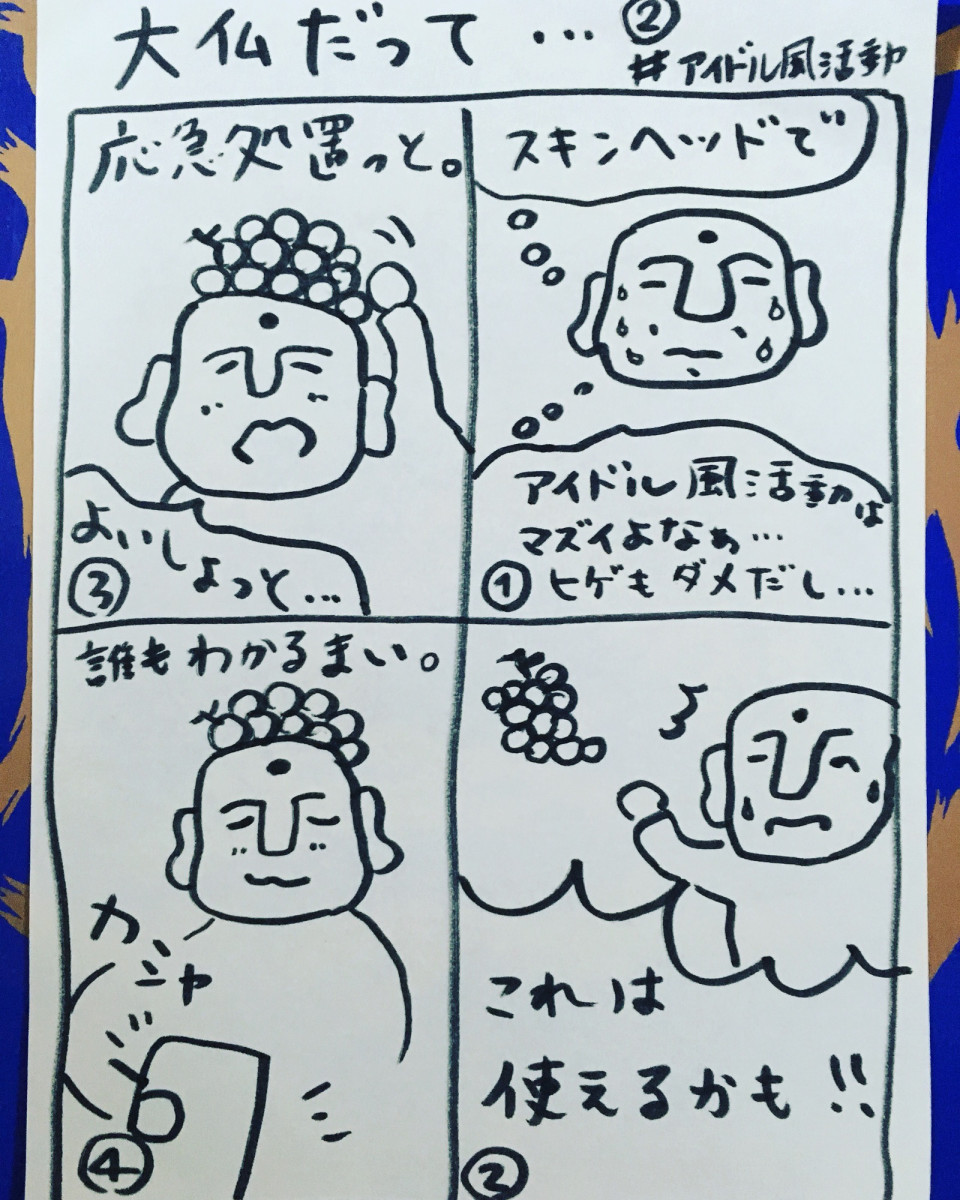 大仏だって… ②
#アイドル風活動
スキンヘッドで
アイドル風活動は
マズイよなぁ…
ヒゲもダメだし…
①
これは
使えるかも!!
②
応急処置っと。
よいしょっと…
③
誰もわかるまい。
カシャ
④